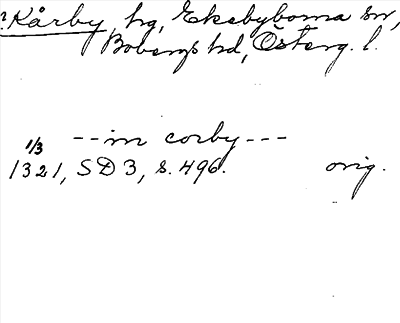 Kårby, hg, Ekebyborna sn,
Bobergs hd, Österg. l.
1/3 -- in corby ---
1321, SD 3, s. 496. orig.